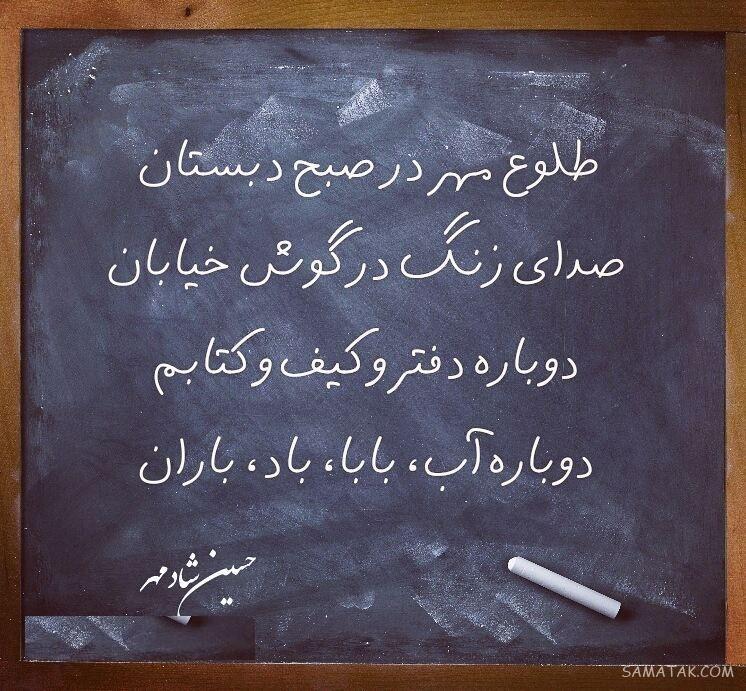 طلوع مهر در صبح دبستان
صدای زنگ در گوش خیابان
دوباره دفتر و کیف و کتابم
دوباره آب، بابا، باد، باران
حسین شادمهر
SAMATAK.COM